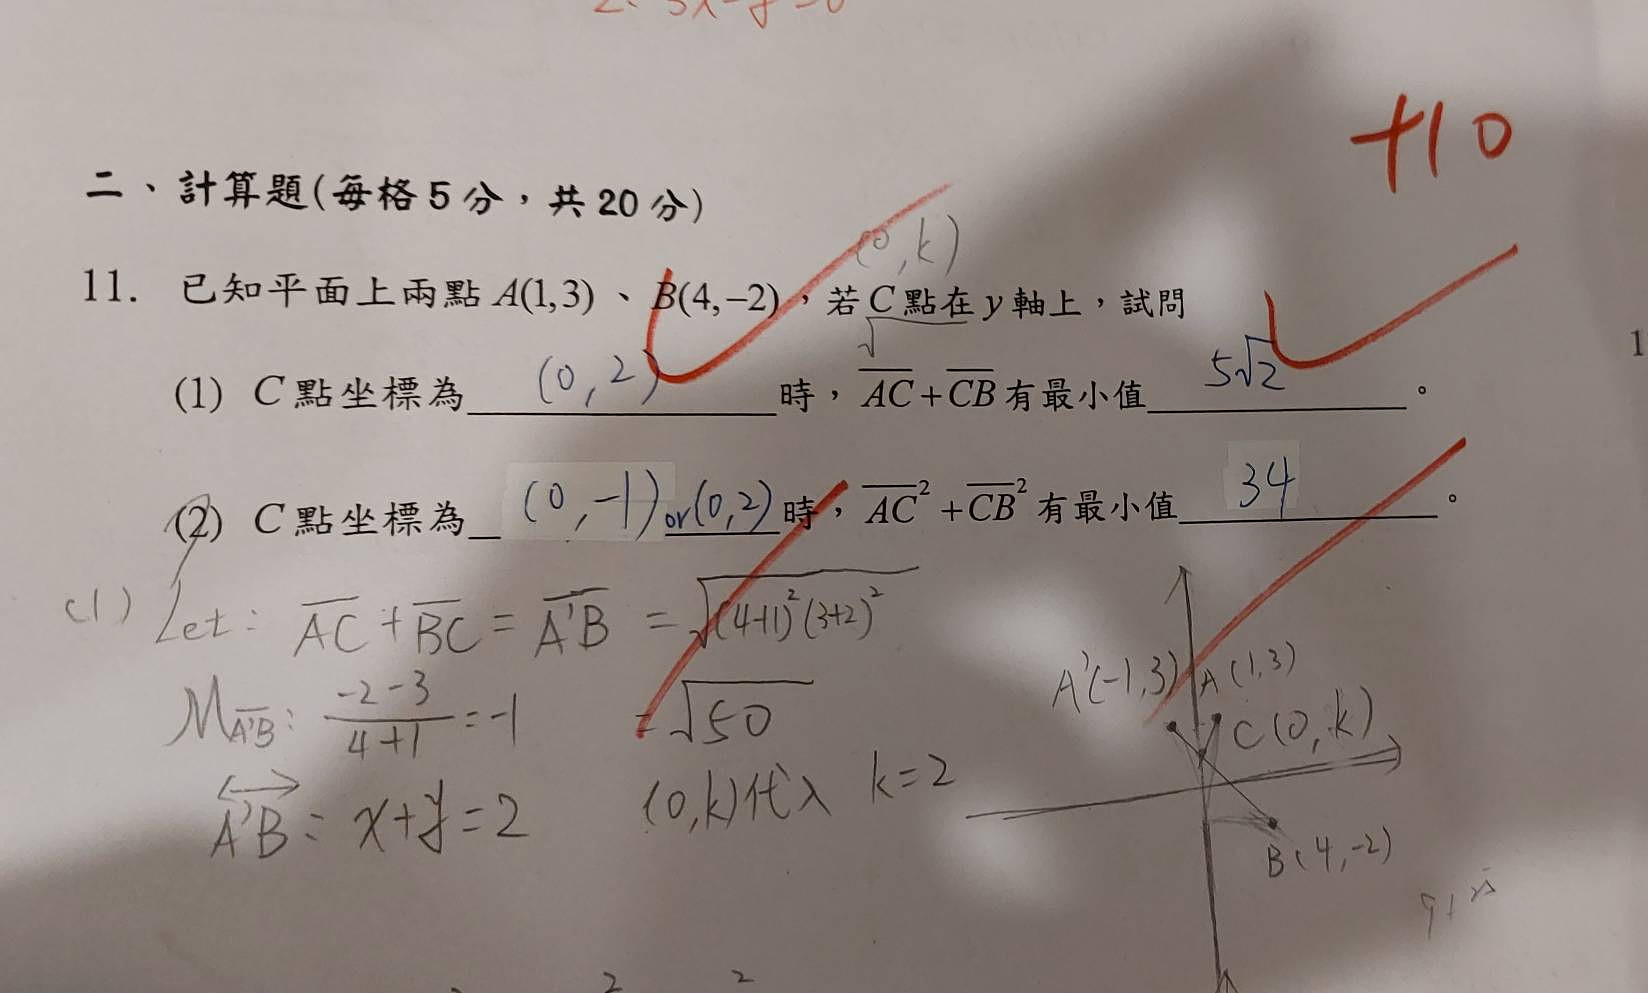 2. 3x-y=0
+10
二、計算題(每格5分，共20分)
(0,k)
11. 已知平面上兩點A(1,3)、B(4,-2)，若C點在y軸上，試問
(1) C點坐標為 (0,2) 時，AC+CB有最小值 5√2 。
(2) C點坐標為 (0,-1) or (0,2) 時，AC²+CB²有最小值 34 。
(1) Let: AC+BC=A'B=√(4+1)²(3+2)²
M A'B: -2-3/4+1=-1 =√50
A'B: x+y=2 (0,k)代入 k=2
A'(-1,3) A(1,3)
C(0,k)
B(4,-2)
2 2
1